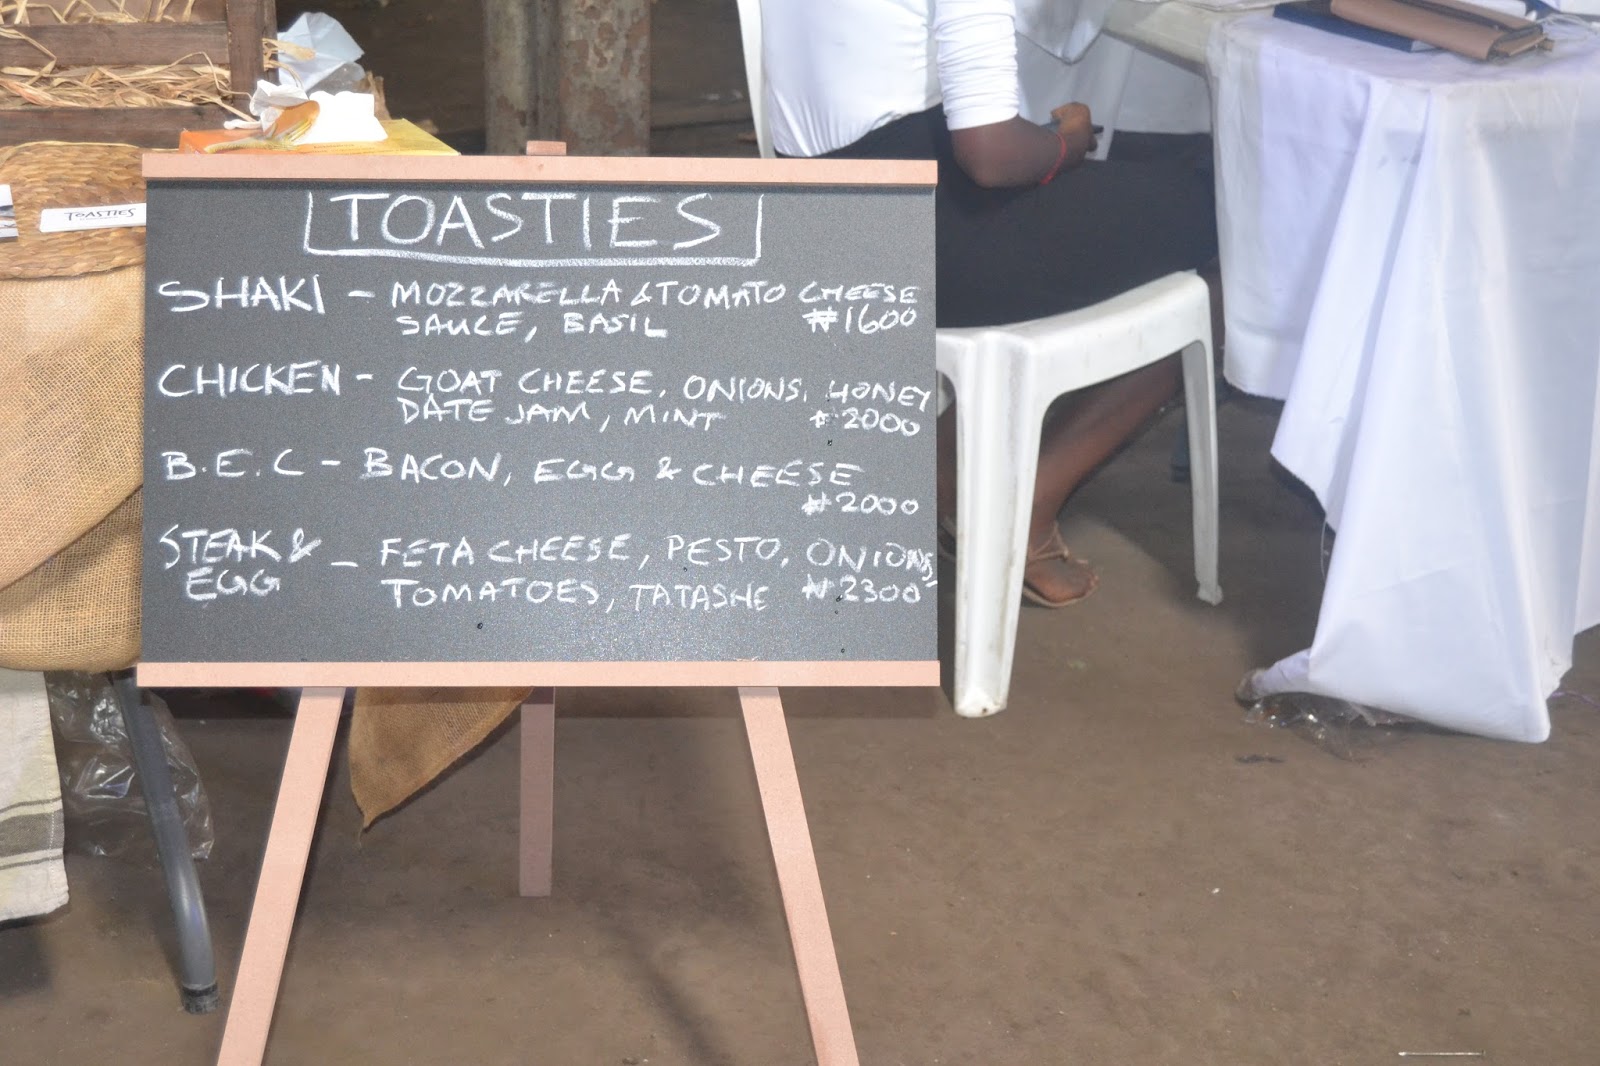 TOASTIES
TOASTIES
SHAKI - MOZZARELLA & TOMATO CHEESE
SAUCE, BASIL ₦1600
CHICKEN - GOAT CHEESE, ONIONS, HONEY
DATE JAM, MINT ₦2000
B.E.C - BACON, EGG & CHEESE
₦2000
STEAK & EGG - FETA CHEESE, PESTO, ONIONS,
TOMATOES, TATASHE ₦2300